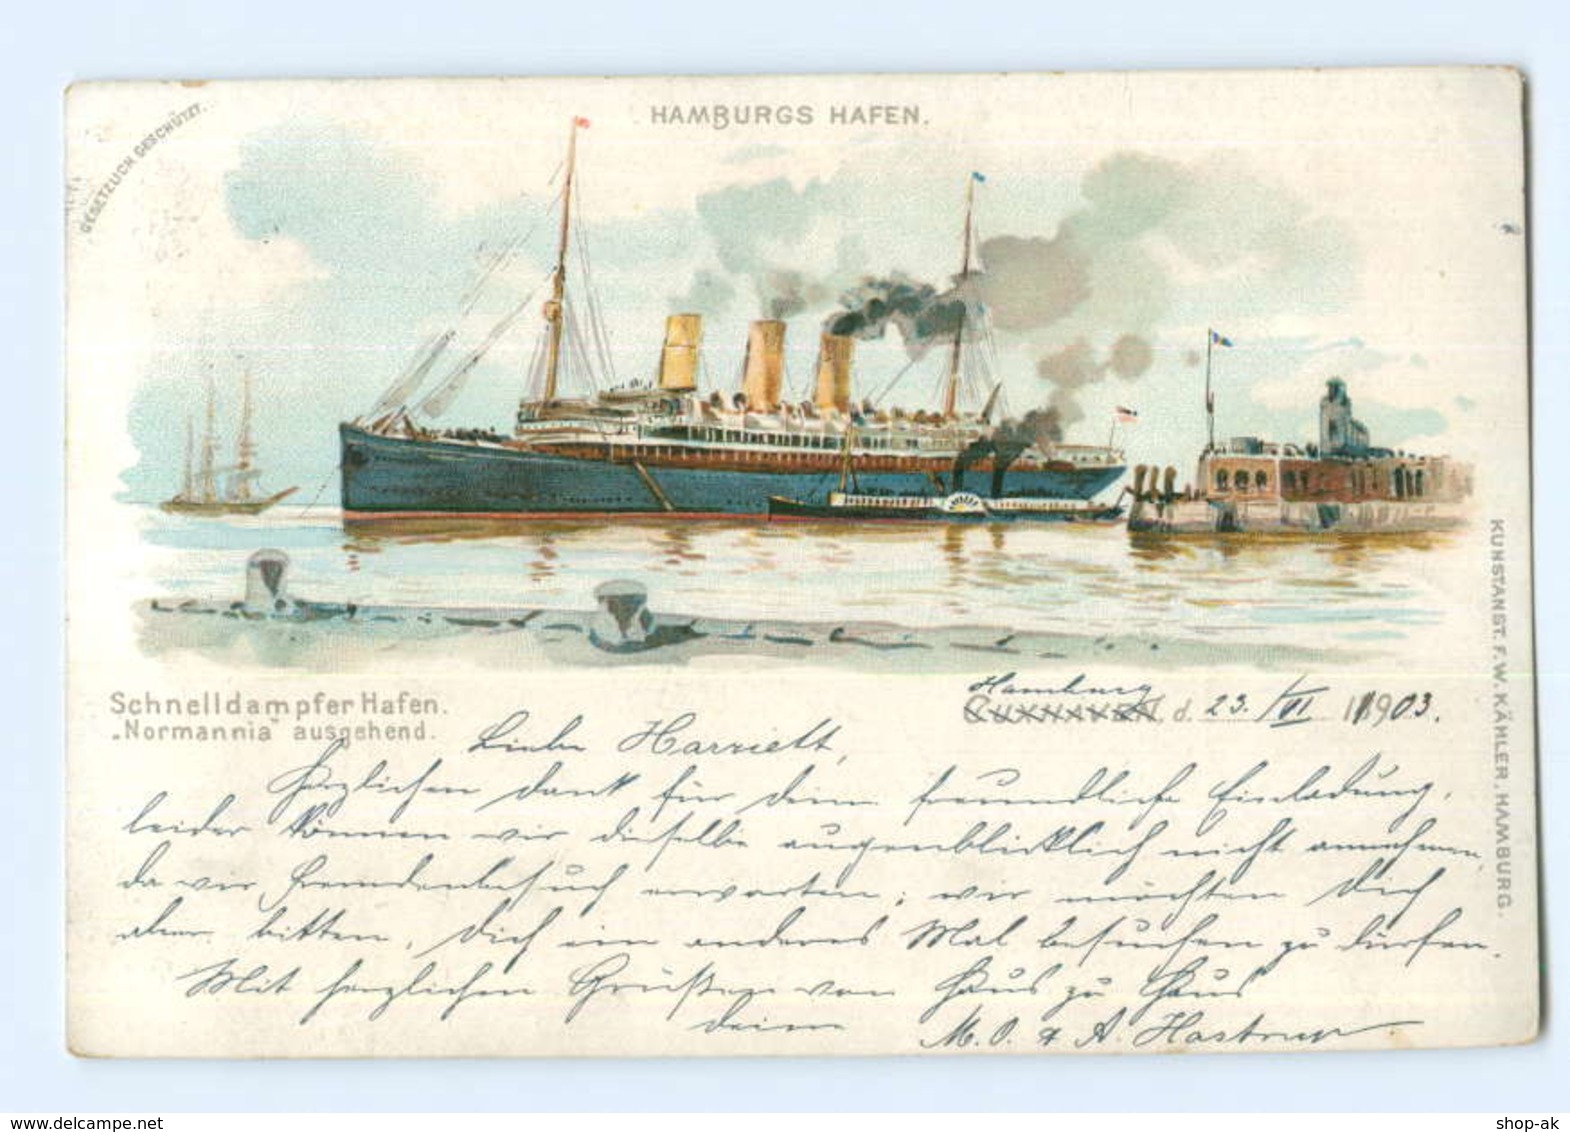 GESETZLICH GESCHÜTZT.
HAMBURGS HAFEN.
Schnelldampfer Hafen.
„Normannia" ausgehend.
Hamburg
Cuxhaven d. 23./VI 1903.
Liebe Harriett,
Herzlichen Dank für Deine freundliche Einladung,
leider können wir dieselbe augenblicklich nicht annehmen,
da wir Fremdenbesuch erwarten; wir möchten Dich
aber bitten, Dich ein anderes Mal besuchen zu dürfen.
Mit herzlichen Grüßen von Haus zu Haus
Deine
M. O. & A. Hastrup
KUNSTANST. F. W. KÄHLER, HAMBURG.
shop-ak